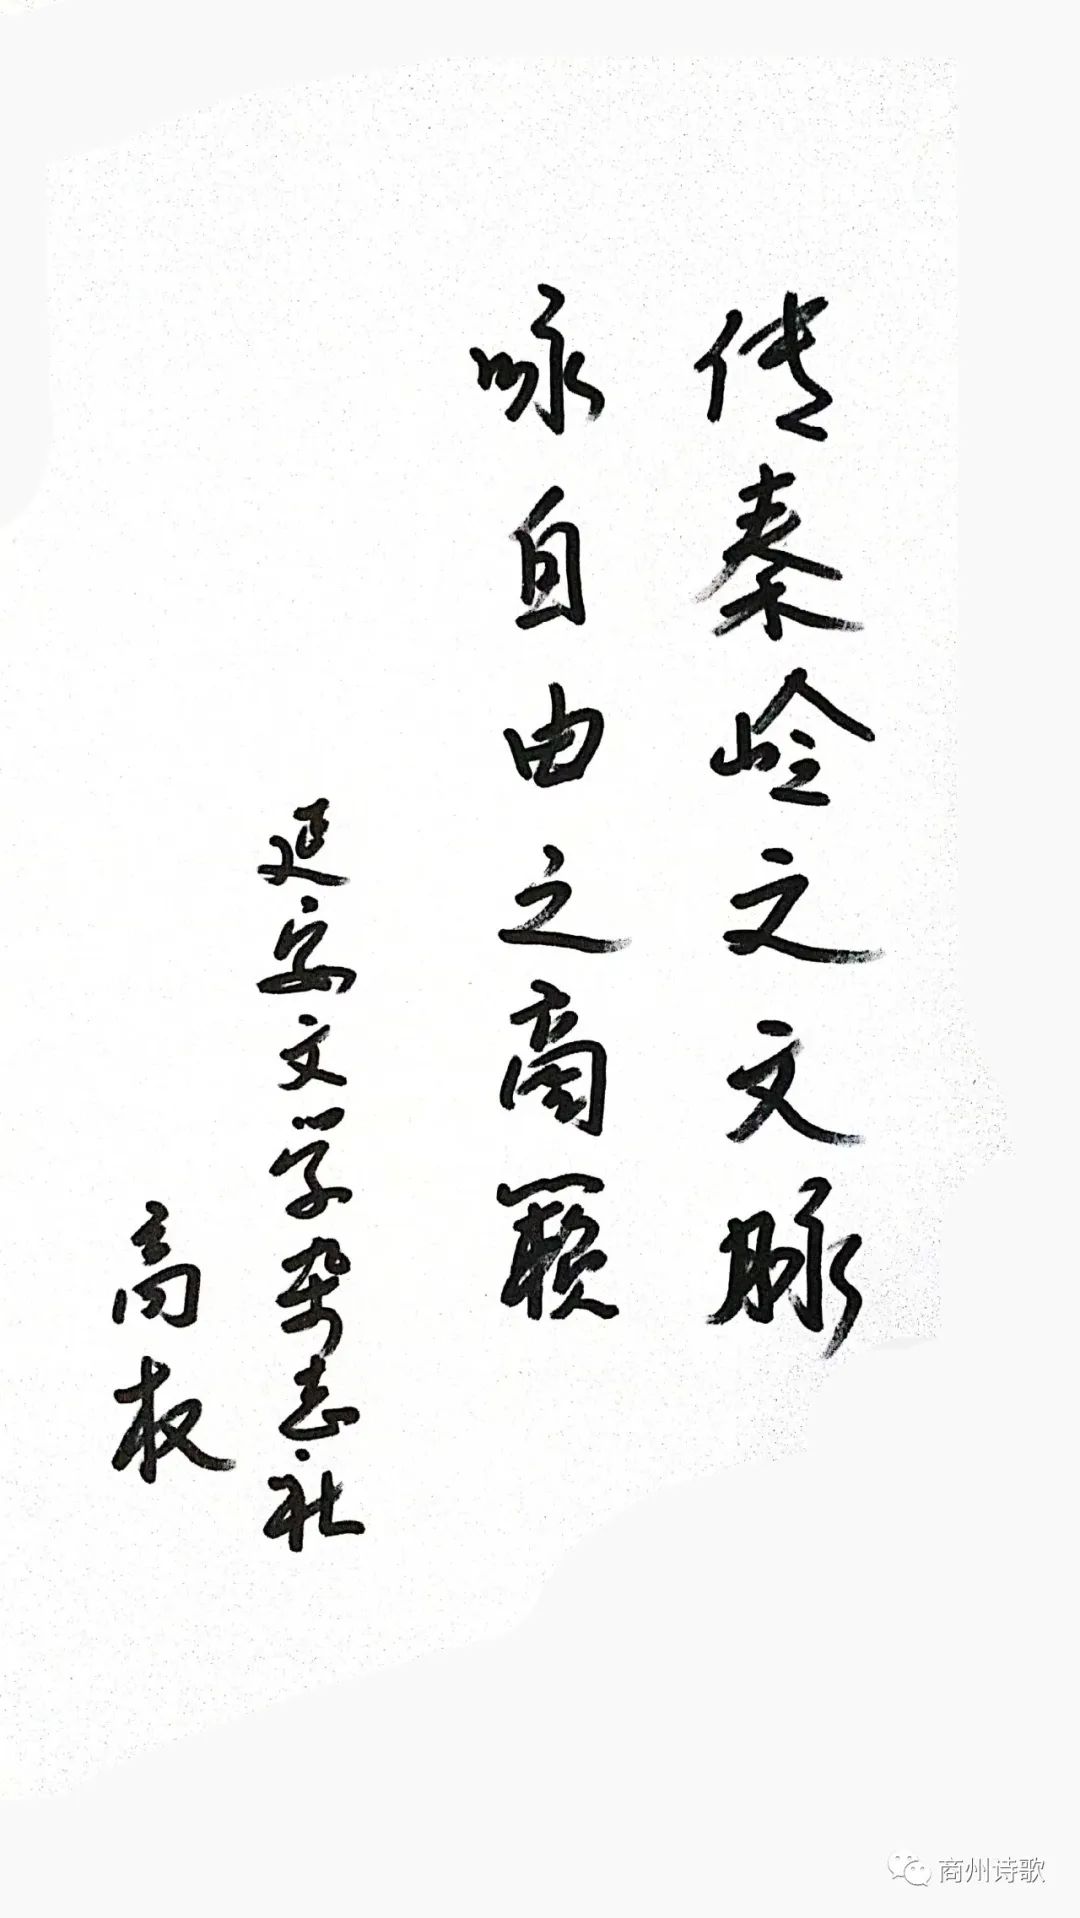 传秦岭之文脉
咏自由之商籁
延安文学杂志社
高权
商州诗歌